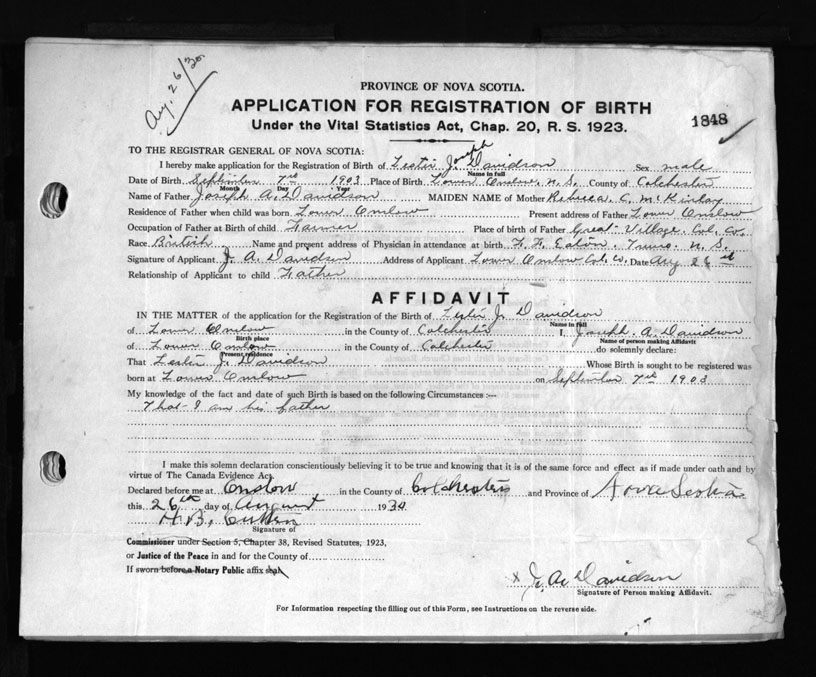 Aug. 26/30.
PROVINCE OF NOVA SCOTIA.
APPLICATION FOR REGISTRATION OF BIRTH
Under the Vital Statistics Act, Chap. 20, R. S. 1923.
1848
TO THE REGISTRAR GENERAL OF NOVA SCOTIA:
I hereby make application for the Registration of Birth of Lester Joseph Davidson Sex male
Name in full
Date of Birth September 7th 1903 Place of Birth Lower Onslow, N. S. County of Colchester
Month Day Year
Name of Father Joseph A. Davidson MAIDEN NAME of Mother Rebecca C. McKinlay
Residence of Father when child was born Lower Onslow Present address of Father Lower Onslow
Occupation of Father at Birth of child Farmer Place of birth of Father Great Village, Col. Co.
Race British Name and present address of Physician in attendance at birth F. F. Eaton, Truro. N. S.
Signature of Applicant J. A. Davidson Address of Applicant Lower Onslow Col. Co. Date Aug 26
Relationship of Applicant to child Father
AFFIDAVIT
IN THE MATTER of the application for the Registration of the Birth of Lester J. Davidson
Name in full
of Lower Onslow in the County of Colchester I, Joseph. A. Davidson
Birth place Name of person making Affidavit
of Lower Onslow in the County of Colchester do solemnly declare:
Present residence
That Lester J. Davidson Whose Birth is sought to be registered was
born at Lower Onslow on September 7th 1903
My knowledge of the fact and date of such Birth is based on the following Circumstances :—
That I am his father
I make this solemn declaration conscientiously believing it to be true and knowing that it is of the same force and effect as if made under oath and by
virtue of The Canada Evidence Act.
Declared before me at Onslow in the County of Colchester and Province of Nova Scotia
this 26th day of August 1930
H. B.
Signature of
Commissioner under Section 5, Chapter 38, Revised Statutes, 1923,
or Justice of the Peace in and for the County of
If sworn before a Notary Public affix seal
x J. A. Davidson
Signature of Person making Affidavit.
For Information respecting the filling out of this Form, see Instructions on the reverse side.